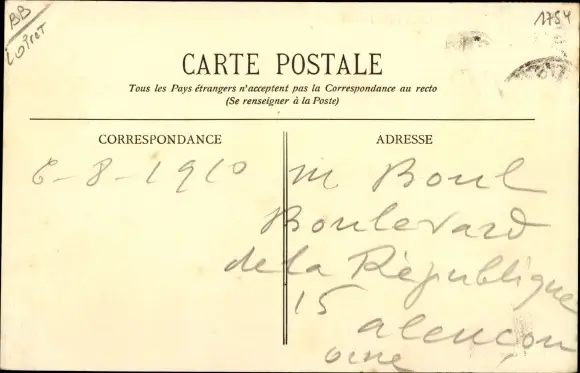 BB
Loiret
1754
CARTE POSTALE
Tous les Pays étrangers n'acceptent pas la Correspondance au recto
(Se renseigner à la Poste)
CORRESPONDANCE
ADRESSE
6-8-1910
M Boul
Boulevard
de la République
15
alençon
orne